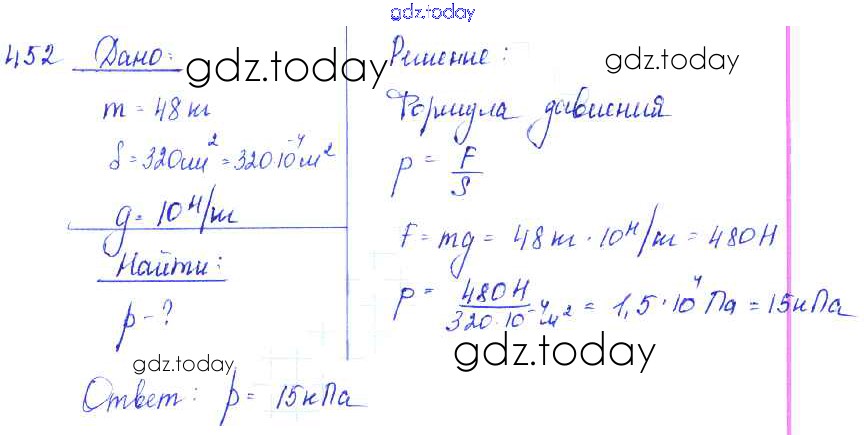 gdz.today
452 Дано:
gdz.today
m = 48 кг
S = 320 см² = 320·10⁻⁴ м²
g = 10 Н/кг
Найти:
p - ?
gdz.today
Решение:
gdz.today
Формула давления
p = F/S
F = mg = 48 кг · 10 Н/кг = 480 Н
p = 480 Н / 320·10⁻⁴ м² = 1,5·10⁴ Па = 15 кПа
gdz.today
Ответ: p = 15 кПа